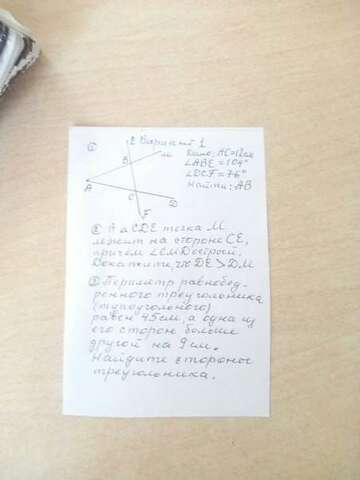 Вариант 1
①
E
B
M
A
C
D
F
Дано: AC=12см
∠ABE = 104°
∠DCF = 76°
Найти: AB
② А △CDE точка M
лежит на стороне CE,
причем ∠CMD острый.
Докажите, что DE > DM
③ Периметр равнобед-
ренного треугольника
(тупоугольного)
равен 45 см, а одна из
его сторон больше
другой на 9 см.
Найдите стороны
треугольника.